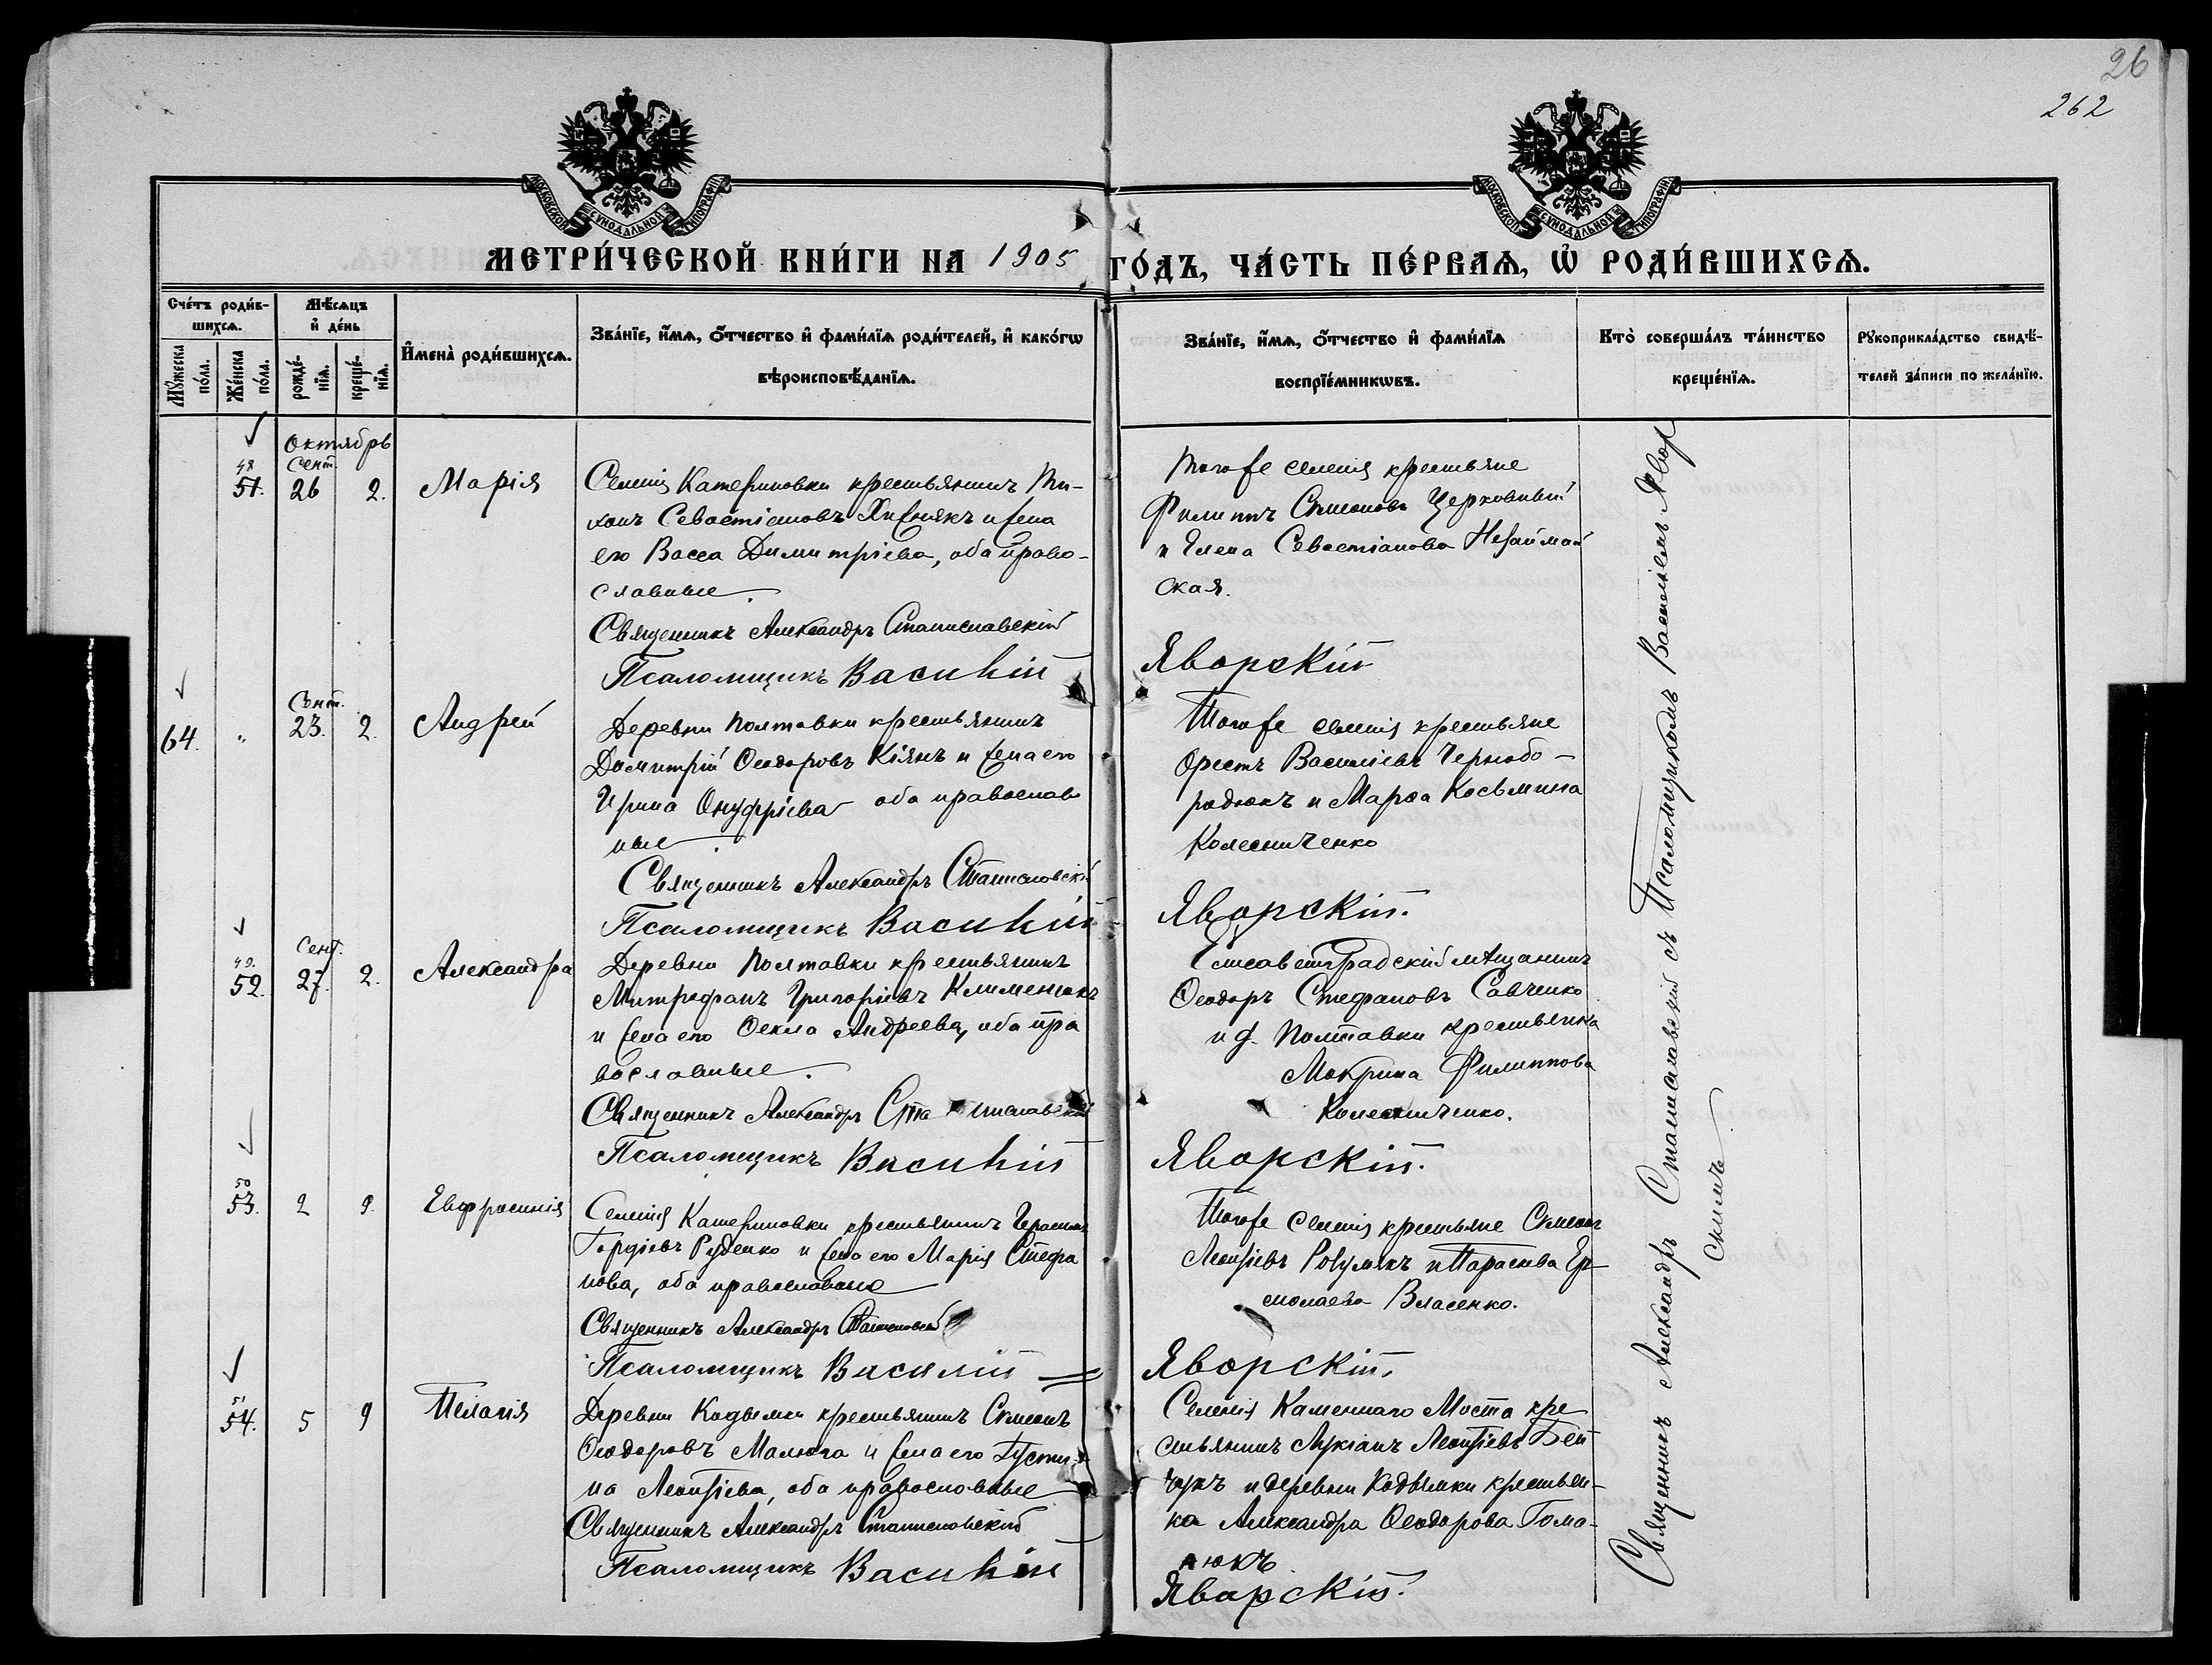 26
262
МОСКОВСКОЙ СѴНОДАЛЬНОЙ ТИПОГРАФІИ
МОСКОВСКОЙ СѴНОДАЛЬНОЙ ТИПОГРАФІИ
МЕТРИ́ЧЕСКОЙ КНИ́ГИ НА 1905 ГО́ДЪ, ЧА́СТЬ ПЕ́РВАѦ, Ѡ҆ РОДИ́ВШИХСѦ.
Сче́тъ роди́в-
шихсѧ.
Мꙋ́жеска
по́ла.
Же́нска
по́ла.
Мѣ́сѧцъ
и҆ де́нь
рожде́-
нїѧ.
креще́-
нїѧ.
И҆мена̀ роди́вшихсѧ.
Зва́нїе, и҆́мѧ, ѻ҆́тчество и҆ фами́лїѧ роди́телей, и҆ како́гѡ
вѣроисповѣ́данїѧ.
Зва́нїе, и҆́мѧ, ѻ҆́тчество и҆ фами́лїѧ
воспрїе́мникѡвъ.
Кто̀ соверша́лъ та́инство
креще́нїѧ.
Рꙋкоприкла́дство свидѣ́-
телей за́писи по жела́нїю.
Октябрь
48
51.
Сент.
26
2.
Марія
Селенія Катериновки крестьянинъ Ти-
хонъ Севастіановъ и жена
его Васса Димитріева, оба право-
славные.
Священникъ Александръ Станиславскій
Псаломщикъ Василій
Тогоже селенія крестьяне
Филиппъ Симеоновъ Церковный
и Елена Севастіанова
ская.
Яворскій
64.
"
Сент.
23.
2.
Андрей
Деревни Полтавки крестьянинъ
Димитрій Ѳеодоровъ Кіянъ и жена его
Ирина Онуфріева оба православ
ные.
Священникъ Александръ Станиславскій
Псаломщикъ Василій
Тогоже селенія крестьяне
Орестъ Василіевъ Чернобо-
родюкъ и Марѳа Косьмина
Колесниченко
Яворскій.
49.
52.
Сент.
27.
2.
Александра
Деревни Полтавки крестьянинъ
Митрофанъ Григоріевъ Клименюкъ
и жена его Ѳекла Андреева, оба пра
вославные.
Священникъ Александръ Станиславскій
Псаломщикъ Василій
Елисаветградскій мѣщанинъ
Ѳеодоръ Стефановъ Савченко
и д. Полтавки крестьянка
Макрина Филиппова
Колесниченко.
Яворскій.
50
53.
2
9.
Евфросинія
Селенія Катериновки крестьянинъ Герасимъ
Гордіевъ Руденко и жена его Марія Стефа
нова, оба православные
Священникъ Александръ Станиславскій
Псаломщикъ Василій
Тогоже селенія крестьяне Симеонъ
Леонтіевъ и Параскева Ер-
молаева Власенко.
Яворскій.
51
54.
5
9
Пелагія
Деревни Кодымки крестьянинъ Симеонъ
Ѳеодоровъ Малюга и жена его Іусти-
на Леонтіева, оба православные
Священникъ Александръ Станиславскій
Псаломщикъ Василій
Селенія Каменнаго Моста кре
стьянинъ Лукіанъ Леонтіевъ Бей
чукъ и деревни Кодымки крестьян-
ка Александра Ѳеодорова Гома-
нюкъ
Яворскій.
Священникъ Александръ Станиславскій съ Псаломщикомъ Василіемъ Явор
скимъ.